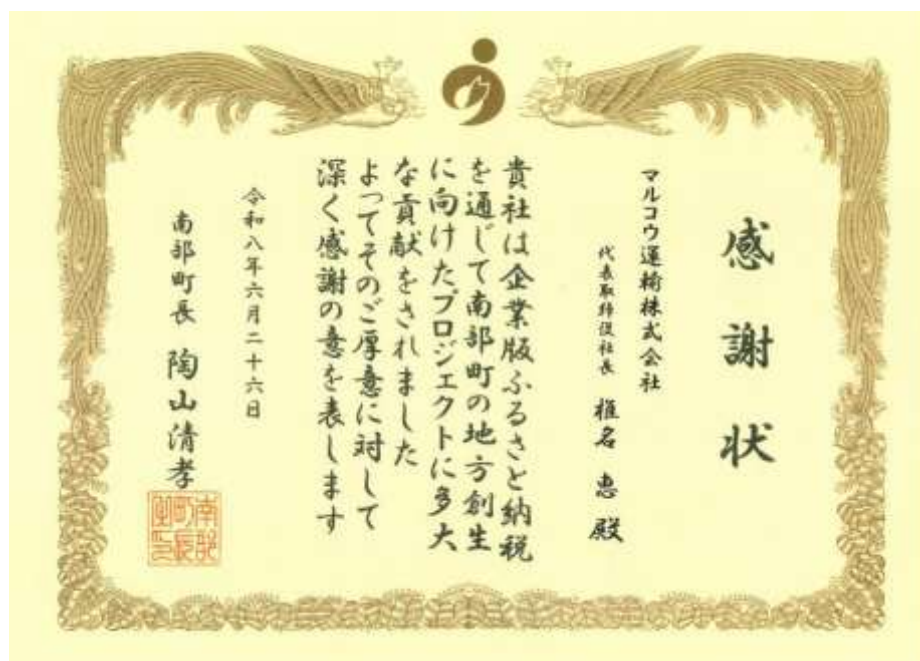 感謝状
マルコウ運輸株式会社
代表取締役社長 椎名 恵 殿
貴社は企業版ふるさと納税
を通じて南部町の地方創生
に向けたプロジェクトに多大
な貢献をされました
よってそのご厚意に対して
深く感謝の意を表します
令和八年六月二十六日
南部町長 陶山清孝
南部
町長
之印